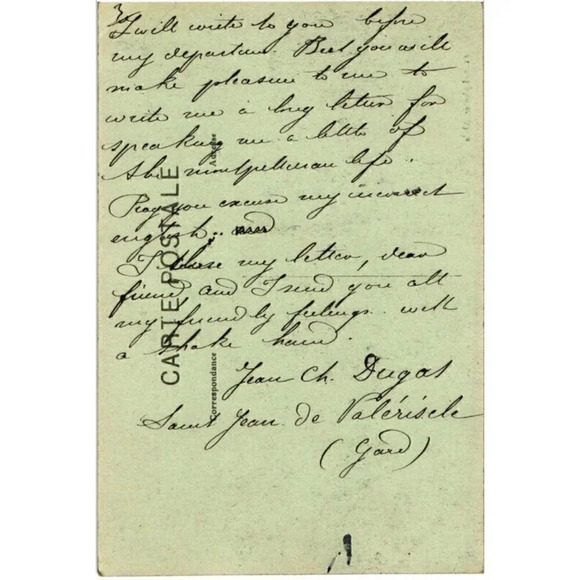 3
I will write to you before
my departure. But you will
make pleasure to me to
write me a long letter for
speaking me a little of
the montpellieran life.
Pray you excuse my incorrect
english..
I close my letter, dear
friend and I send you all
my friendly feelings with
a shake hand.
Jean Ch. Dugas
Saint Jean de Valériscle
(Gard)
CARTE POSTALE
Correspondance
Adresse